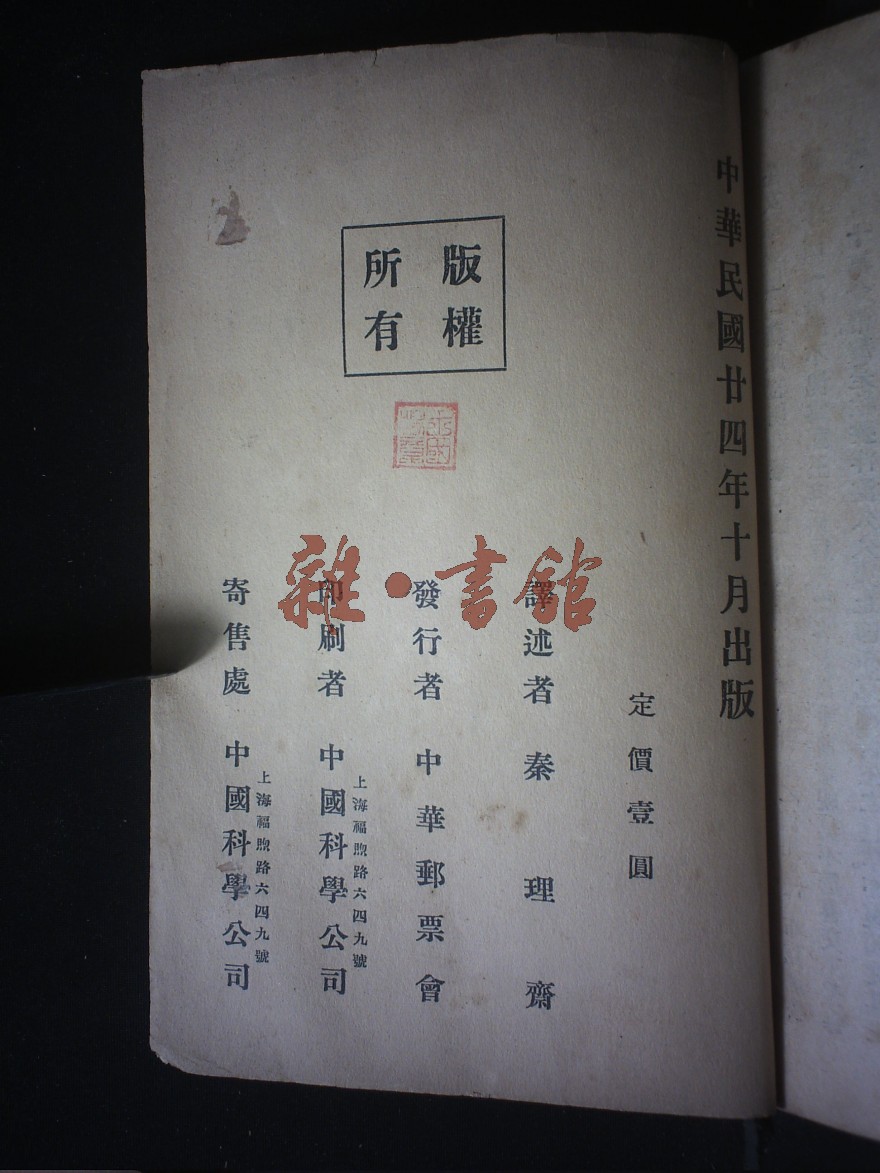 中華民國廿四年十月出版
定價壹圓
譯述者 秦理齋
發行者 中華郵票會
印刷者 中國科學公司
上海福煦路六四九號
寄售處 中國科學公司
上海福煦路六四九號
版權
所有
雜·書館